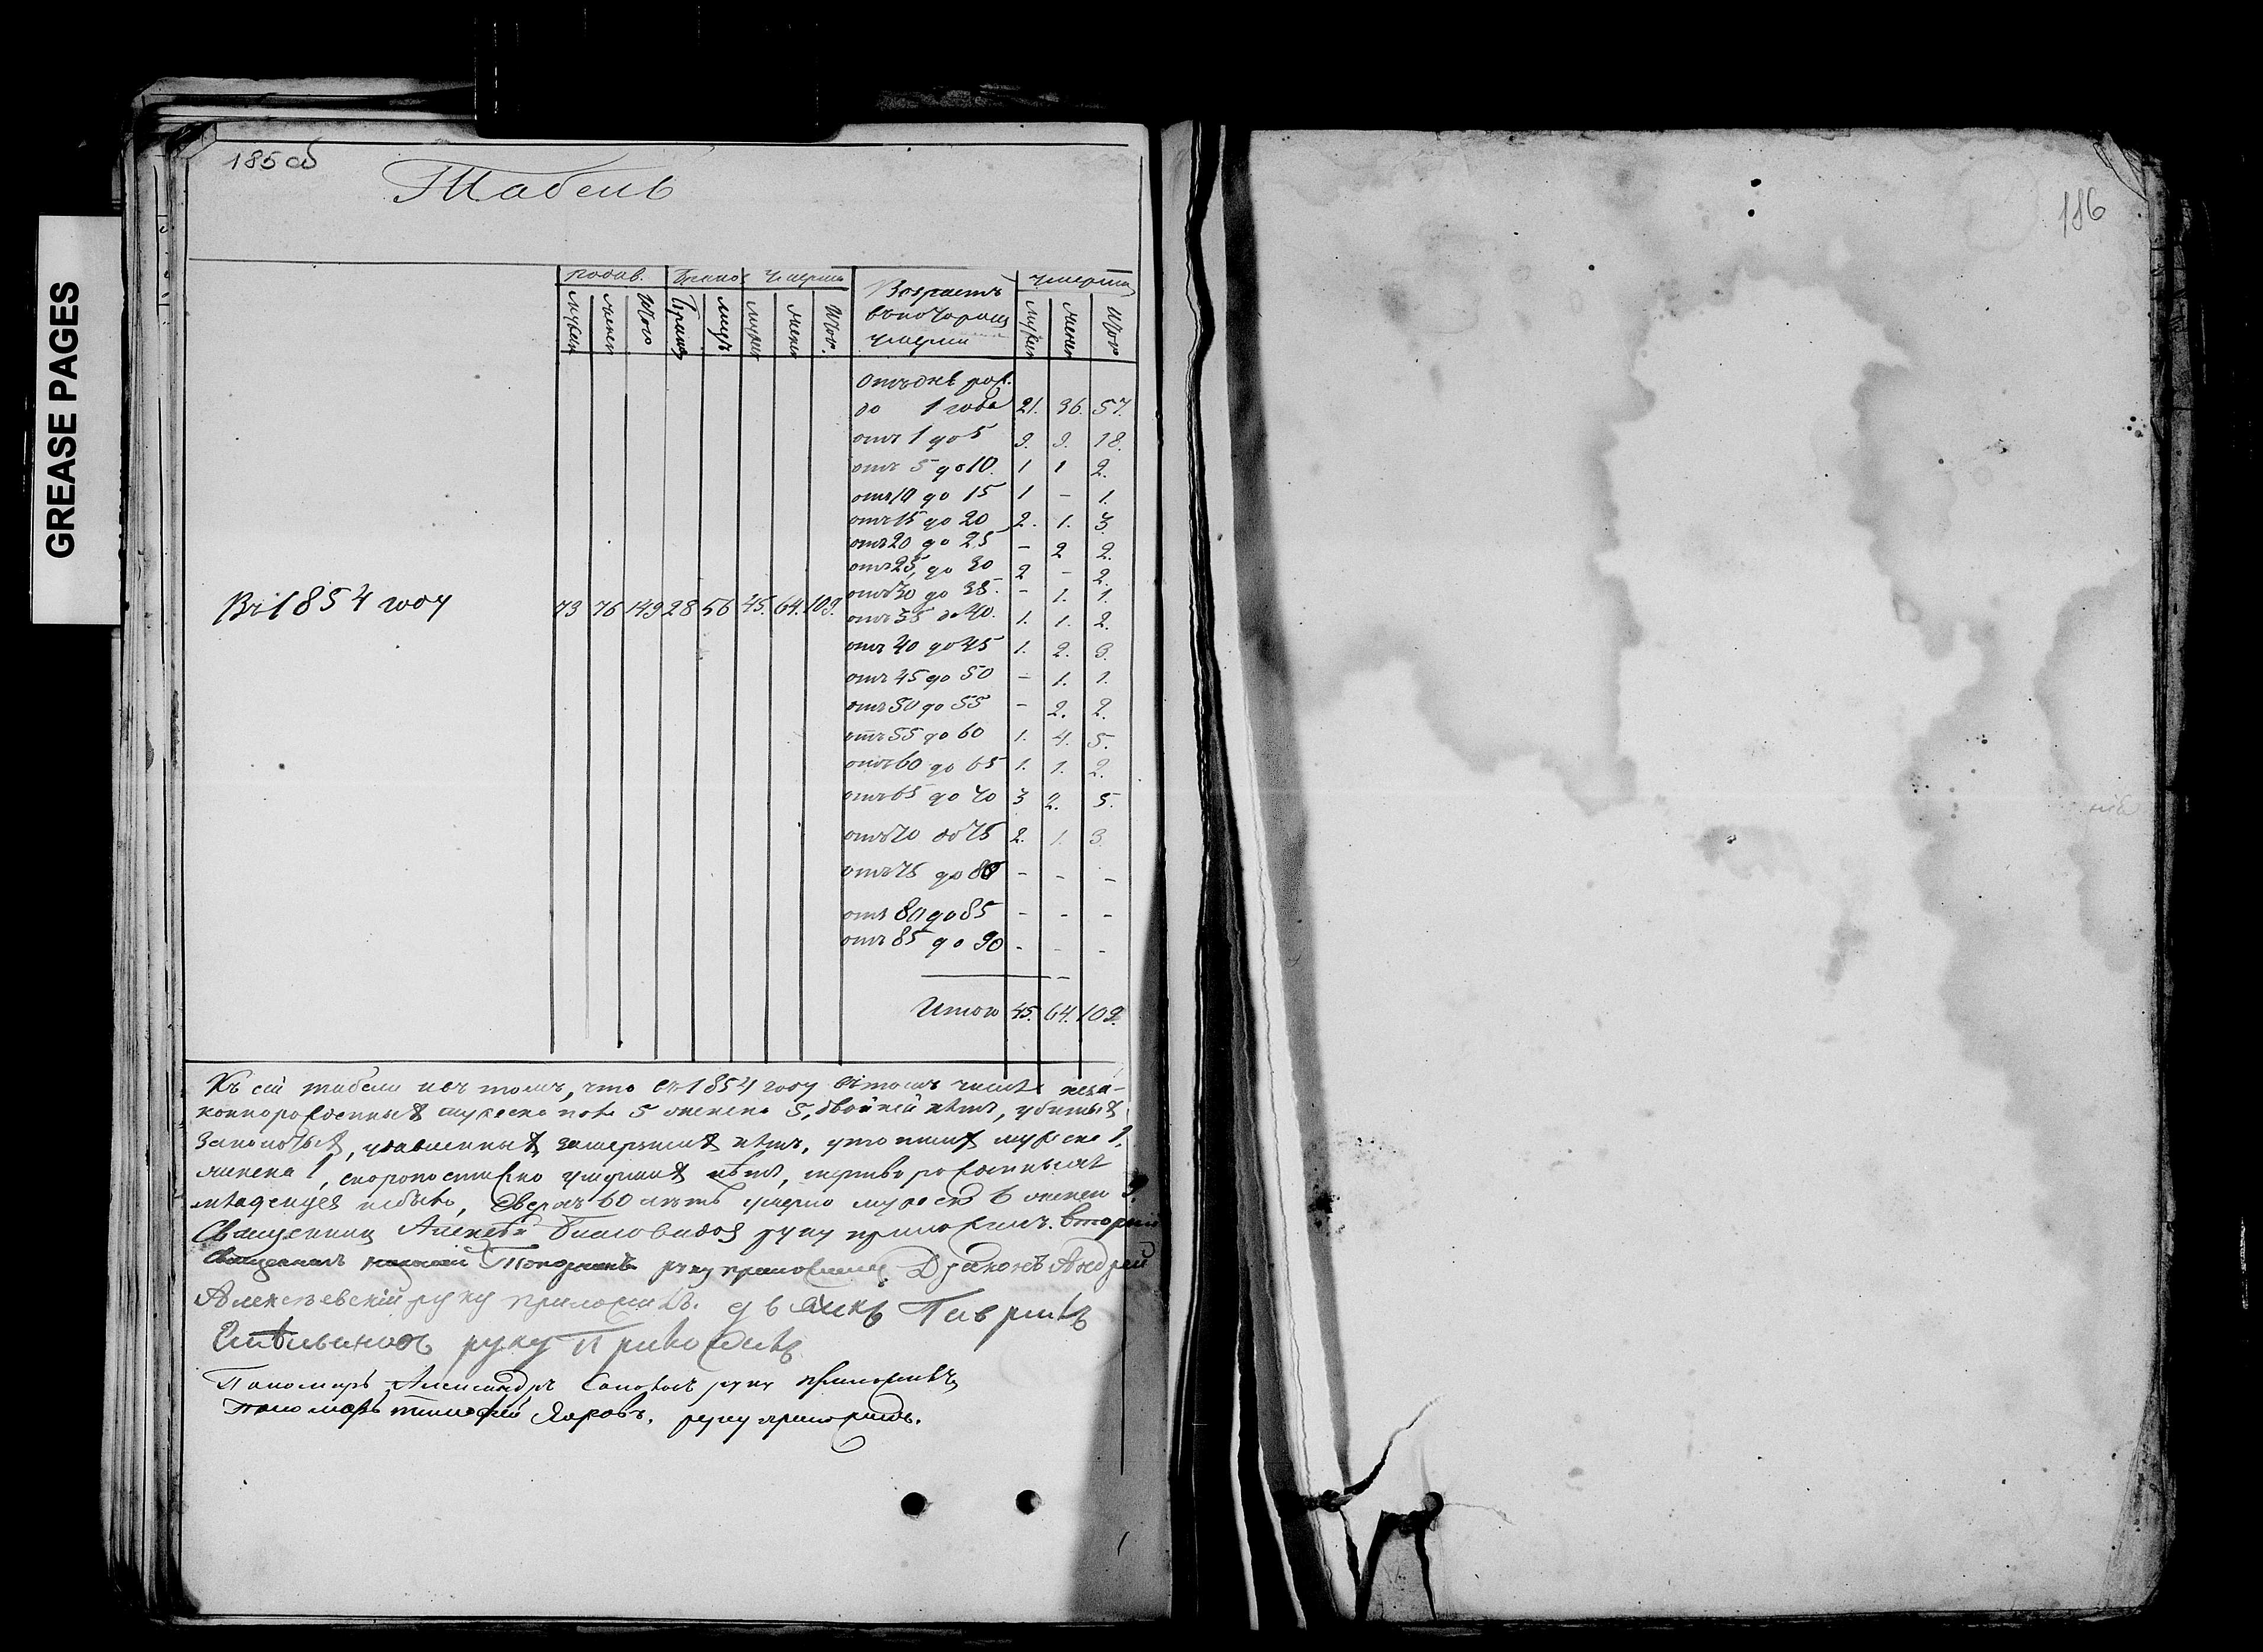 GREASE PAGES
185 об
Табель
186
родив. Брако Умерш
Возрастъ
въ которомъ
умерли
Умерш
Мужес
женс
Итог
Брако
лицъ
Мужес
женс
Итог.
Мужес
женс
Итог
Отъ дня рож.
до 1 года 21. 36. 57.
отъ 1 до 5 9. 9. 18.
отъ 5 до 10. 1 1 2.
отъ 10 до 15 1 - 1.
отъ 15 до 20 2. 1. 3.
отъ 20 до 25 - 2 2.
отъ 25 до 30 2 - 2.
отъ 30 до 35. - 1. 1.
Въ 1854 году 73 76 149 28 56 45. 64. 109.
отъ 35 до 40. 1. 1. 2.
отъ 40 до 45 1. 2. 3.
отъ 45 до 50 - 1. 1.
отъ 50 до 55 - 2. 2.
отъ 55 до 60 1. 4. 5.
отъ 60 до 65 1. 1. 2.
отъ 65 до 70 3 2. 5.
отъ 70 до 75 2. 1. 3.
отъ 75 до 80 - - -
отъ 80 до 85 - - -
отъ 85 до 90 - - -
Итого 45. 64. 109.
Къ сей табели въ томъ, что въ 1854 году въ томъ числѣ неза-
коннорожденныхъ мужеска пола 5 женска 5, двойней нѣтъ, убитыхъ
удавленныхъ замерзшихъ нѣтъ, утопшихъ мужска 1.
женска 1, скоропостижно умершихъ нѣтъ, мертворожденныхъ
младенцевъ небыло, сверхъ 60 лѣтъ умерло мужеск 6 женск
Священникъ Алексѣй руку приложилъ. вторый
Священникъ руку приложилъ. Дьяконъ Андрей
Алексѣевскій руку приложилъ. дьячекъ Гаврилъ
руку приложилъ
Пономарь Александръ руку приложилъ
Пономарь Тимофей руку приложилъ.